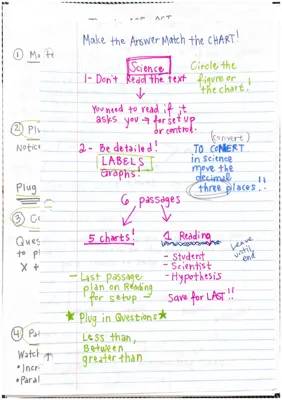 Make the Answer Match the CHART!
Science
Circle the
figure or
the chart!
1- Don't Read the text
You need to read if it
asks you → for set up
or control.
2- Be detailed!
LABELS
Graphs!
(convert)
TO CONVERT
in science
move the
decimal
three places!!
6 passages
5 charts!
1 Reading
Leave
until
end
- Student
- Scientist
- Hypothesis
Save for LAST!!
- Last passage-
plan on Reading
for setup
★ Plug in Questions ★
Less than,
Between,
greater than
①
②
Notice
Plug
③
Ques
to p
X +
④
Watch
• Incr
• Paral